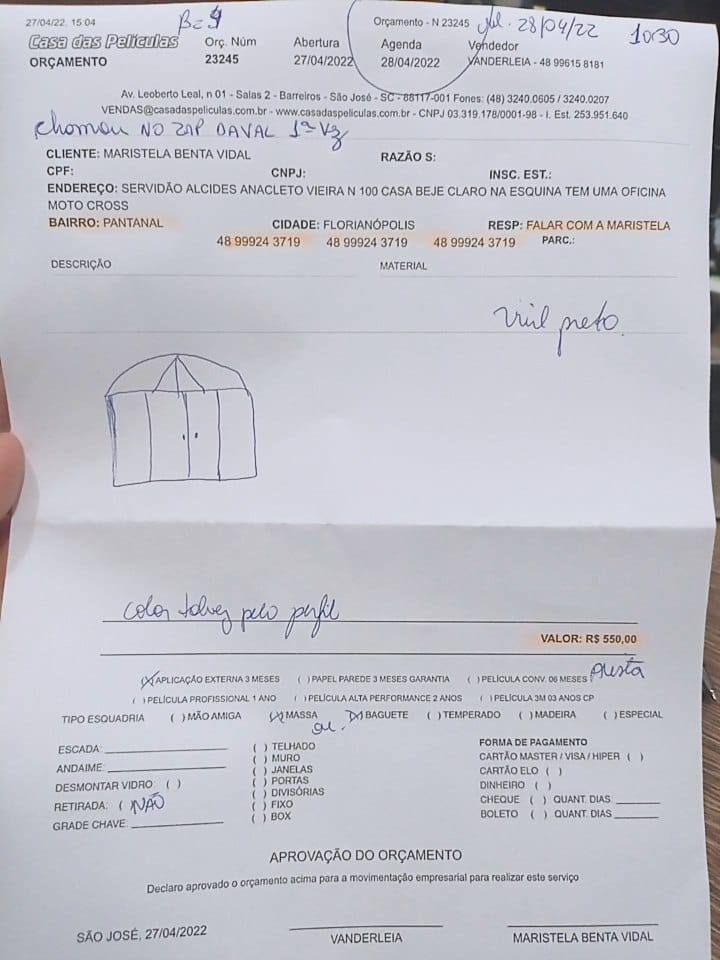 27/04/22, 15:04
Orçamento - N 23245
28/04/22
10:30
Casa das Películas
Orç. Núm
Abertura
Agenda
Vendedor
ORÇAMENTO
23245
27/04/2022
28/04/2022
VANDERLEIA - 48 99615 8181
Av. Leoberto Leal, n 01 - Salas 2 - Barreiros - São José - SC - 88117-001 Fones: (48) 3240.0605 / 3240.0207
VENDAS@casadaspeliculas.com.br - www.casadaspeliculas.com.br - CNPJ 03.319.178/0001-98 - I. Est. 253.951.640
chamou NO ZAP DAVAL 1ª Vz
CLIENTE: MARISTELA BENTA VIDAL
RAZÃO S:
CPF:
CNPJ:
INSC. EST.:
ENDEREÇO: SERVIDÃO ALCIDES ANACLETO VIEIRA N 100 CASA BEJE CLARO NA ESQUINA TEM UMA OFICINA
MOTO CROSS
BAIRRO: PANTANAL
CIDADE: FLORIANÓPOLIS
RESP: FALAR COM A MARISTELA
48 99924 3719 48 99924 3719 48 99924 3719 PARC.:
DESCRIÇÃO
MATERIAL
preto
color talvez pelo perfil
VALOR: R$ 550,00
(X) APLICAÇÃO EXTERNA 3 MESES ( ) PAPEL PAREDE 3 MESES GARANTIA ( ) PELÍCULA CONV. 06 MESES
( ) PELÍCULA PROFISSIONAL 1 ANO ( ) PELÍCULA ALTA PERFORMANCE 2 ANOS ( ) PELÍCULA 3M 03 ANOS CP
TIPO ESQUADRIA ( ) MÃO AMIGA (X) MASSA (X) BAGUETE ( ) TEMPERADO ( ) MADEIRA ( ) ESPECIAL
ou
ESCADA:
ANDAIME:
DESMONTAR VIDRO: ( )
RETIRADA: ( ) NÃO
GRADE CHAVE:
( ) TELHADO
( ) MURO
( ) JANELAS
( ) PORTAS
( ) DIVISÓRIAS
( ) FIXO
( ) BOX
FORMA DE PAGAMENTO
CARTÃO MASTER / VISA / HIPER ( )
CARTÃO ELO ( )
DINHEIRO ( )
CHEQUE ( ) QUANT. DIAS:
BOLETO ( ) QUANT. DIAS
APROVAÇÃO DO ORÇAMENTO
Declaro aprovado o orçamento acima para a movimentação empresarial para realizar este serviço
SÃO JOSÉ, 27/04/2022
VANDERLEIA
MARISTELA BENTA VIDAL